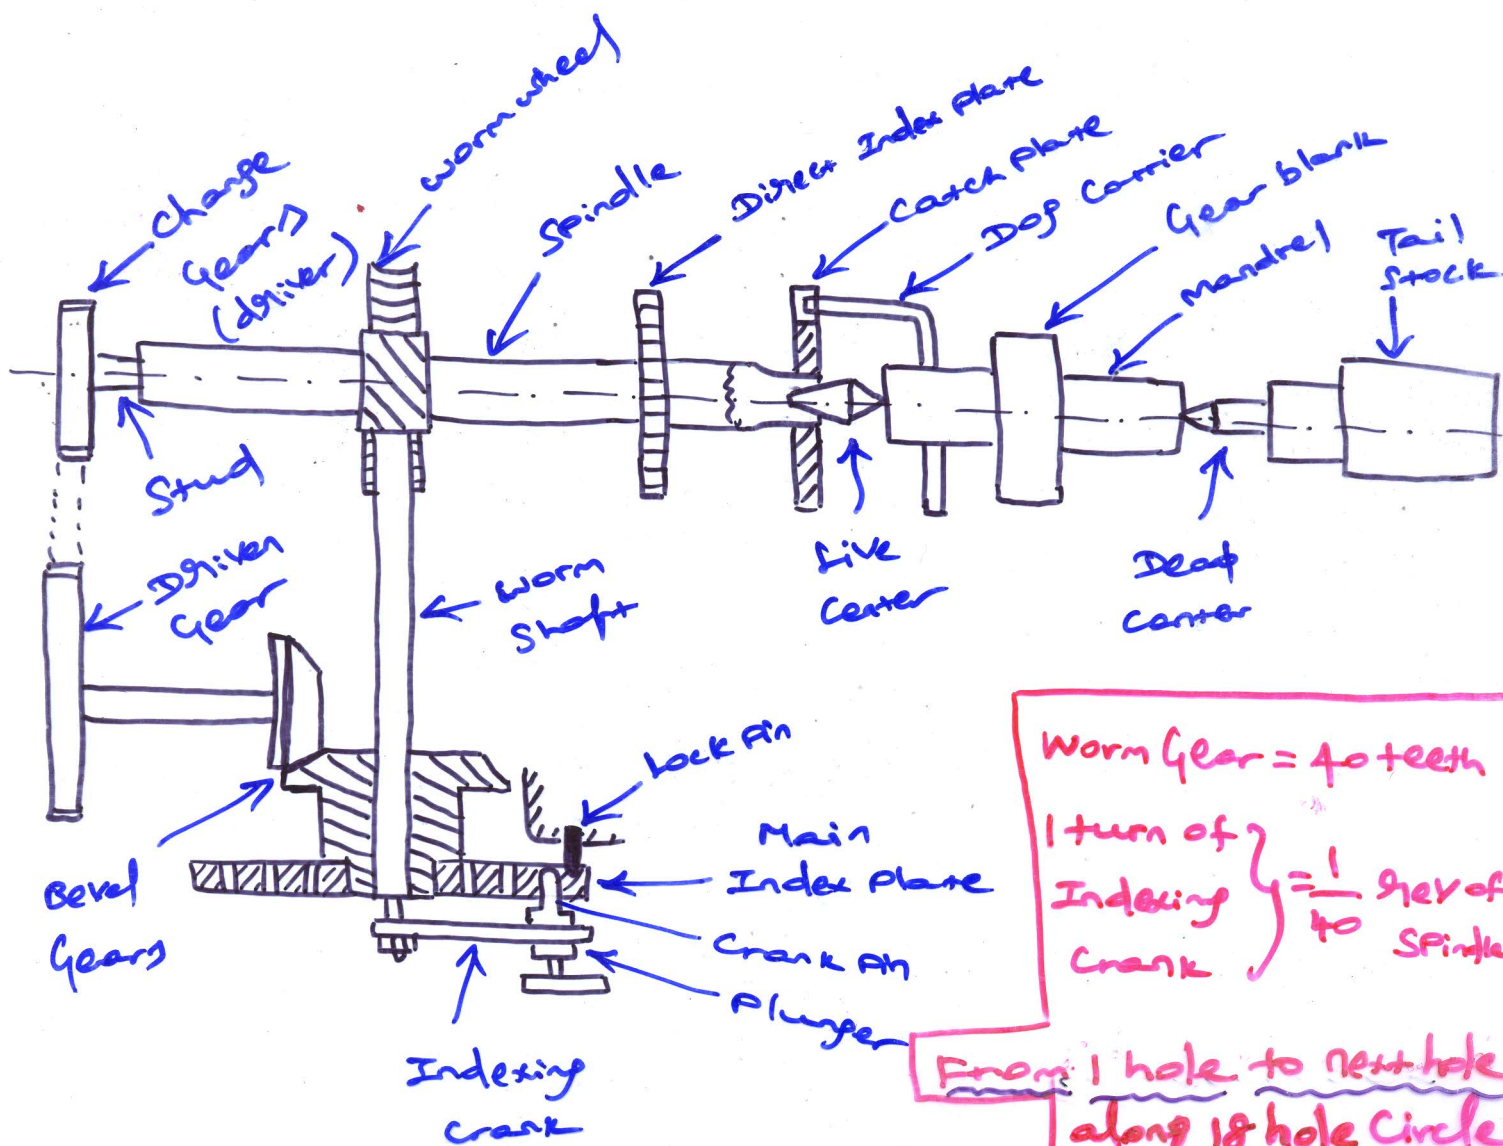 worm wheel
Change
Gears
(driver)
Spindle
Direct Index plate
Catch plate
Dog Carrier
Gear blank
Mandrel
Tail
Stock
Stud
Driven
Gear
Worm
Shaft
Live
Center
Dead
Center
Lock Pin
Main
Index Plate
Bevel
Gears
Crank Pin
Plunger
Indexing
Crank
Worm Gear = 40 teeth
1 turn of
Indexing
Crank
} = 1/40 rev of
Spindle
From 1 hole to next hole
along 18 hole Circle